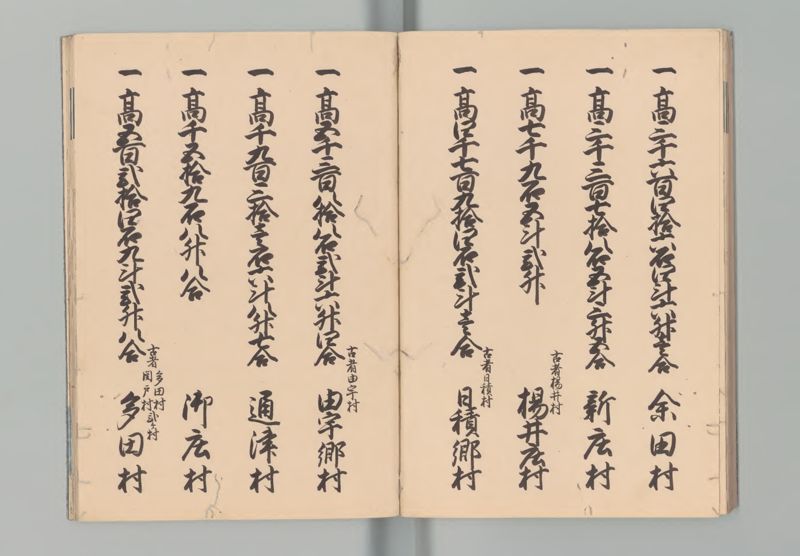 一 高二千六百四拾六石四斗六升壱合 余田村
一 高二千三百七拾八石五斗二升五合 新庄村
一 高七千九石五斗弐升 古者楊井村 楊井庄村
一 高四千七百九拾四石弐斗壱合 古者日積村 日積郷村
一 高五千三百八拾八石弐斗六升四合 古者由宇村 由宇郷村
一 高千九百二拾壱石六斗八升七合 通津村
一 高千五拾九石八升八合 御庄村
一 高五百弐拾四石九斗弐升八合 古者多田村関戸村弐ヶ村 多田村